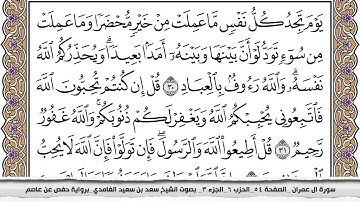 يَوْمَ تَجِدُ كُلُّ نَفْسٍ مَّا عَمِلَتْ مِنْ خَيْرٍ مُّحْضَرًا وَمَا عَمِلَتْ
مِن سُوٓءٍ تَوَدُّ لَوْ أَنَّ بَيْنَهَا وَبَيْنَهُۥٓ أَمَدَۢا بَعِيدًاۗ وَيُحَذِّرُكُمُ ٱللَّهُ
نَفْسَهُۥۗ وَٱللَّهُ رَءُوفُۢ بِٱلْعِبَادِ ٣٠ قُلْ إِن كُنتُمْ تُحِبُّونَ ٱللَّهَ
فَٱتَّبِعُونِى يُحْبِبْكُمُ ٱللَّهُ وَيَغْفِرْ لَكُمْ ذُنُوبَكُمْۗ وَٱللَّهُ غَفُورٌ
رَّحِيمٌ ٣١ قُلْ أَطِيعُوا۟ ٱللَّهَ وَٱلرَّسُولَۖ فَإِن تَوَلَّوْا۟ فَإِنَّ ٱللَّهَ لَا يُحِبُّ
سورة ال عمران _الصفحة ٥٤ _الحزب ٦ _الجزء ٣_ بصوت الشيخ سعد بن سعيد الغامدي_ برواية حفص عن عاصم